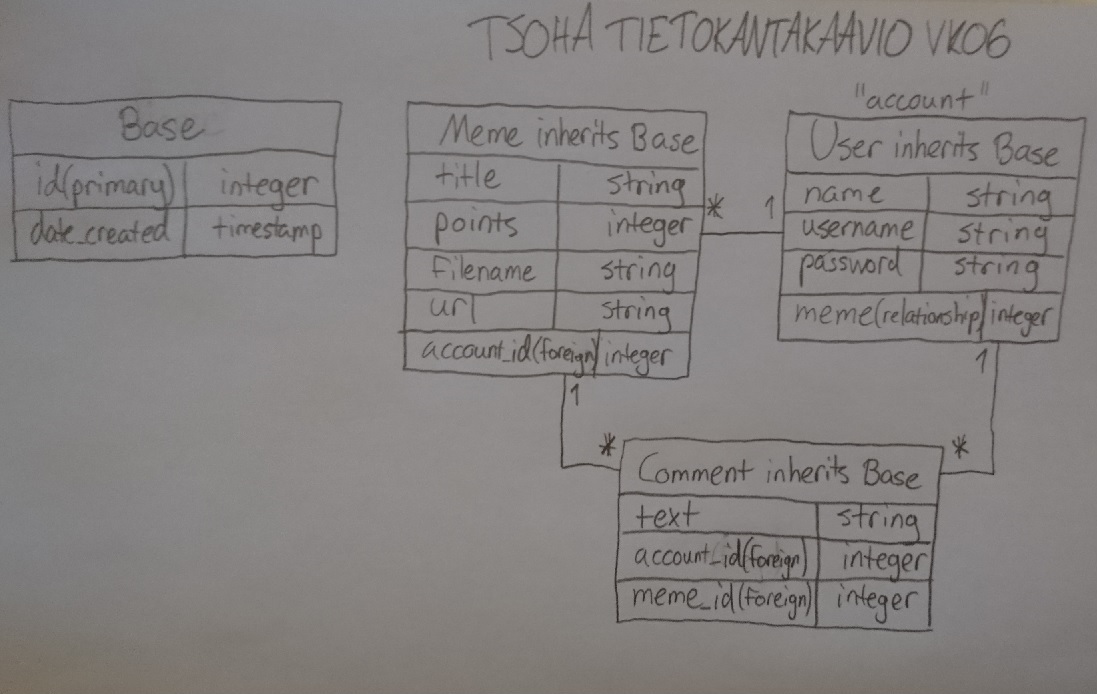 TSOHA TIETOKANTAKAAVIO VK06
Base
id(primary) integer
date_created timestamp
Meme inherits Base
title string
points integer
filename string
url string
account_id(foreign) integer
"account"
User inherits Base
name string
username string
password string
meme(relationship) integer
* 1
1 *
1 *
Comment inherits Base
text string
account_id(foreign) integer
meme_id(foreign) integer